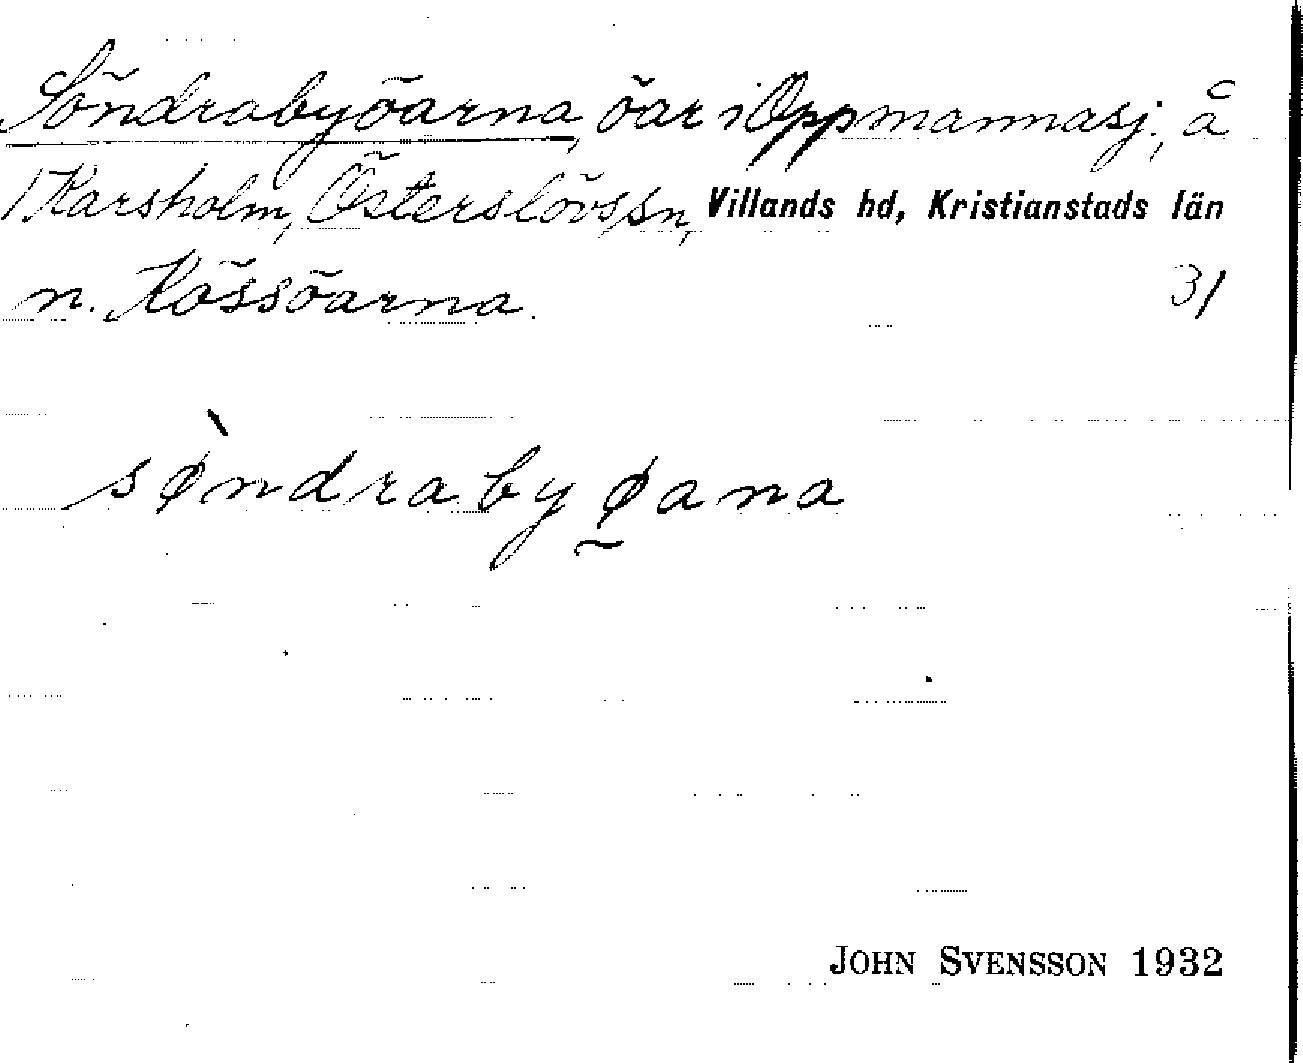 Söndrabyöarna, öar i Oppmannasj., å
1 Karsholm, Österslövs sn, Villands hd, Kristianstads län
n. Kössöarna. 31
sø̀ndraby ø̰ana
JOHN SVENSSON 1932